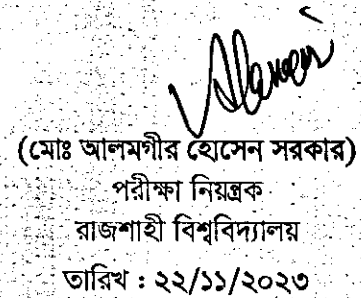 (মোঃ আলমগীর হোসেন সরকার)
পরীক্ষা নিয়ন্ত্রক
রাজশাহী বিশ্ববিদ্যালয়
তারিখ : ২২/১১/২০২৩